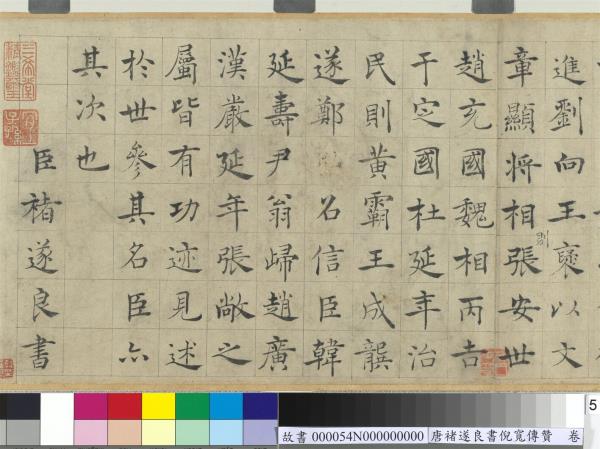 進劉向王褒以文
章顯將相張安世
劉
趙充國魏相丙吉
于定國杜延年治
民則黃霸王成龔
遂鄭 名信臣韓
延壽尹翁歸趙廣
漢嚴延年張敞之
屬皆有功迹見述
於世參其名臣亦
其次也
臣褚遂良書
三希堂精鑑璽
宜子孫
故書 000054N000000000 唐褚遂良書倪寬傳贊 卷
5